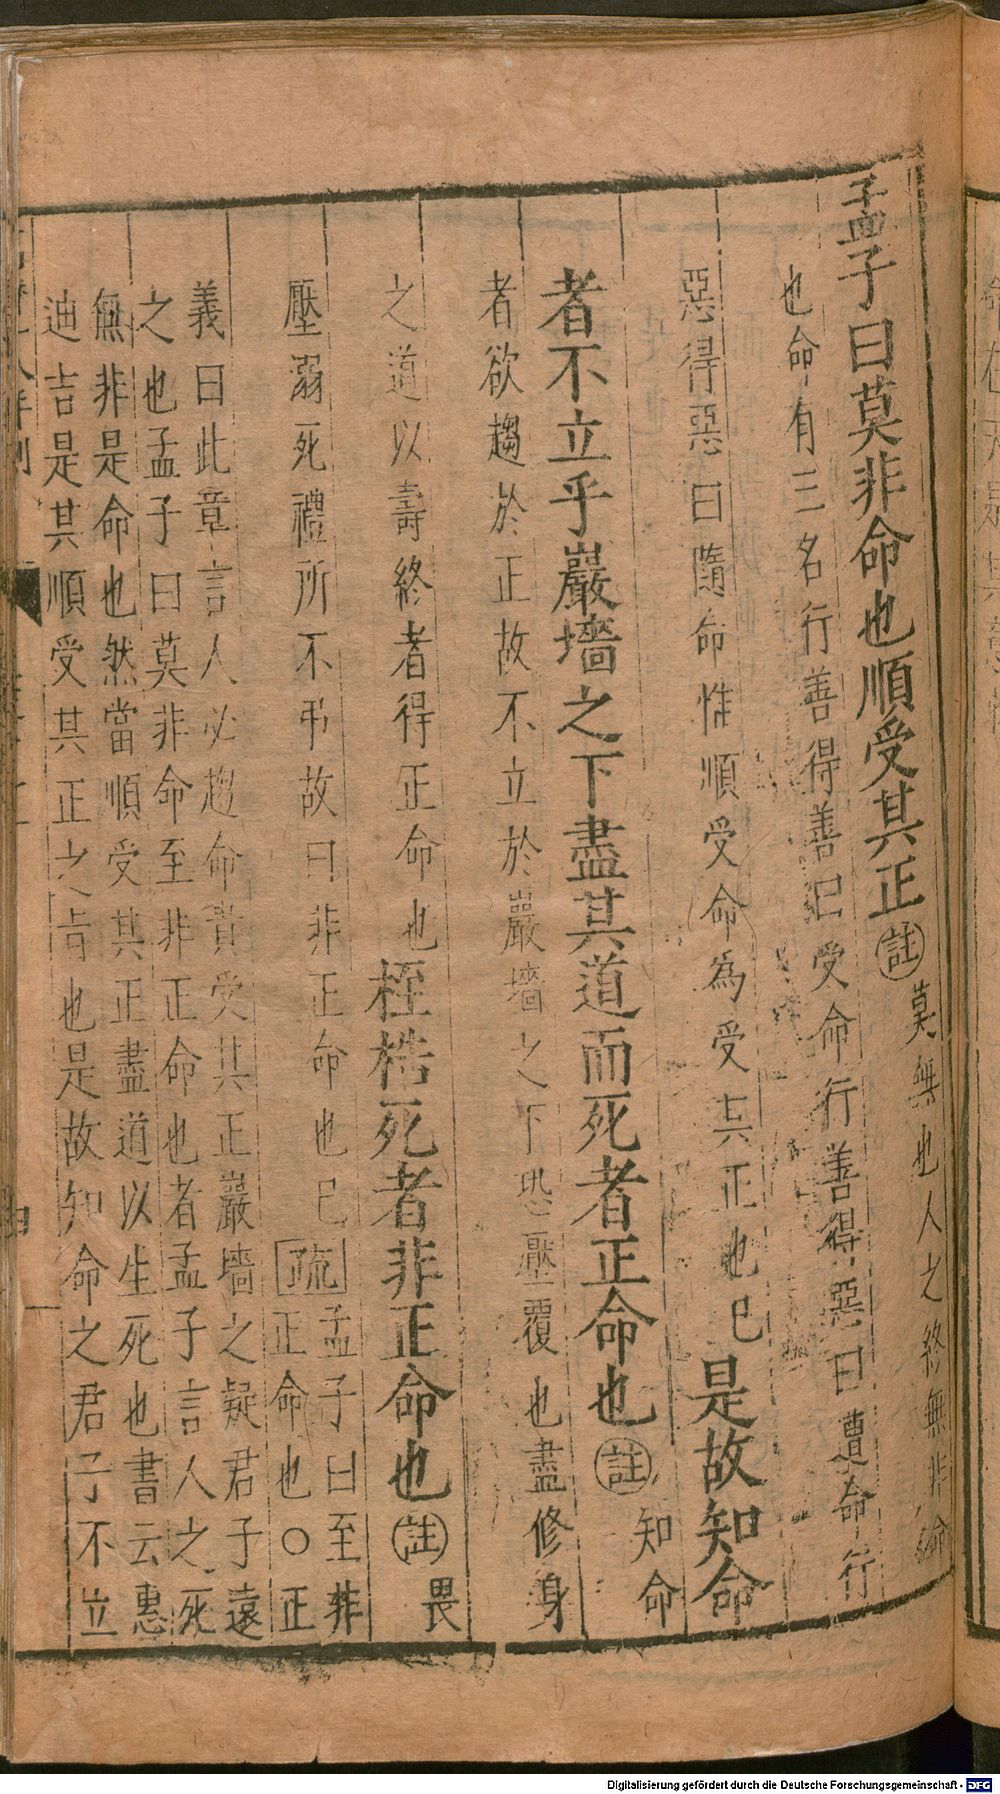 孟子曰莫非命也順受其正註莫無也人之終無非命
也命有三名行善得善曰受命行善得惡曰遭命行
惡得惡曰隨命惟順受命為受其正也已是故知命
者不立乎巖墻之下盡其道而死者正命也註知命
者欲趨於正故不立於巖墻之下恐壓覆也盡修身
之道以壽終者得正命也桎梏死者非正命也註畏
壓溺死禮所不弔故曰非正命也已疏孟子曰至非
正命也○正
義曰此章言人必趨命貴受其正巖墻之疑君子遠
之也孟子曰莫非命至非正命也者孟子言人之死
無非是命也然當順受其正盡道以生死也書云惠
迪吉是其順受其正之吉也是故知命之君子不立
Digitalisierung gefördert durch die Deutsche Forschungsgemeinschaft - DFG